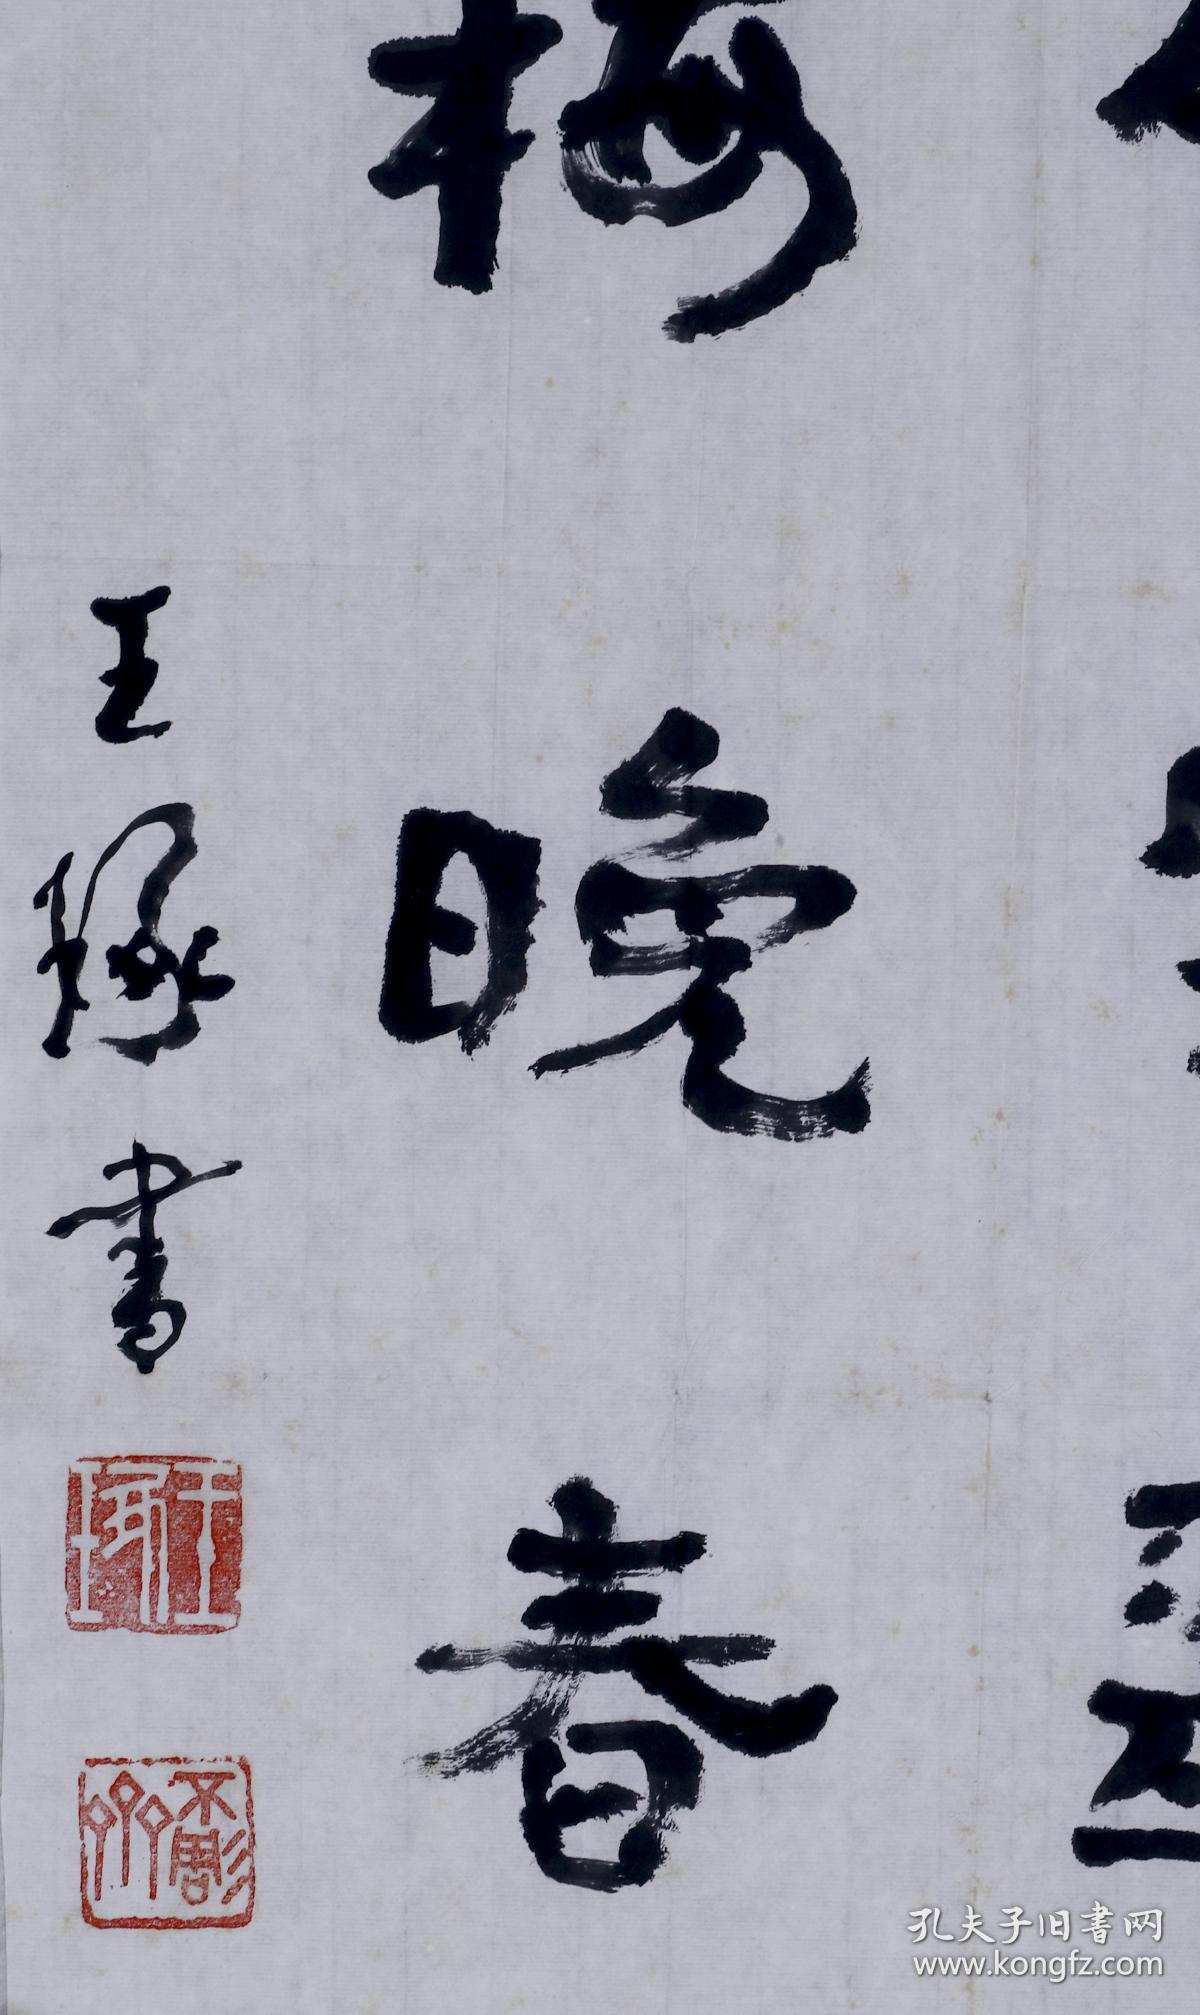 梅晚春
王琢書
王琢
不彫齊
孔夫子旧書网
www.kongfz.com